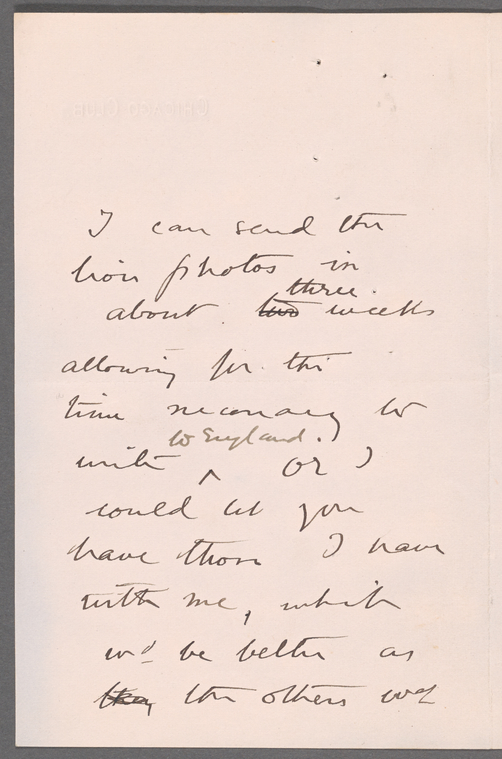 CHICAGO CLUB
I can send the
lion photos in
about two three weeks
allowing for the
time necessary to
write to England. or I
could let you
have those I have
with me, which
wd be better as
they the others wd